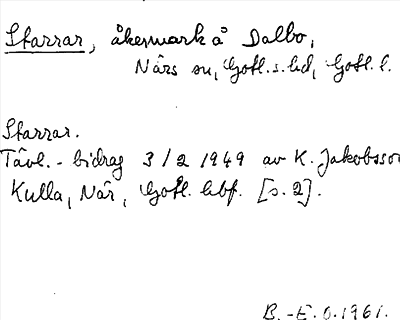 Starrar, åkermark å Dalbo,
Närs sn, Gotl. s. hd, Gotl. l.
Starrar.
Tävl.-bidrag 3/2 1949 av K. Jakobsson
Kulla, När, Gotl. hbf. [s. 2].
B.-E. O. 1961.